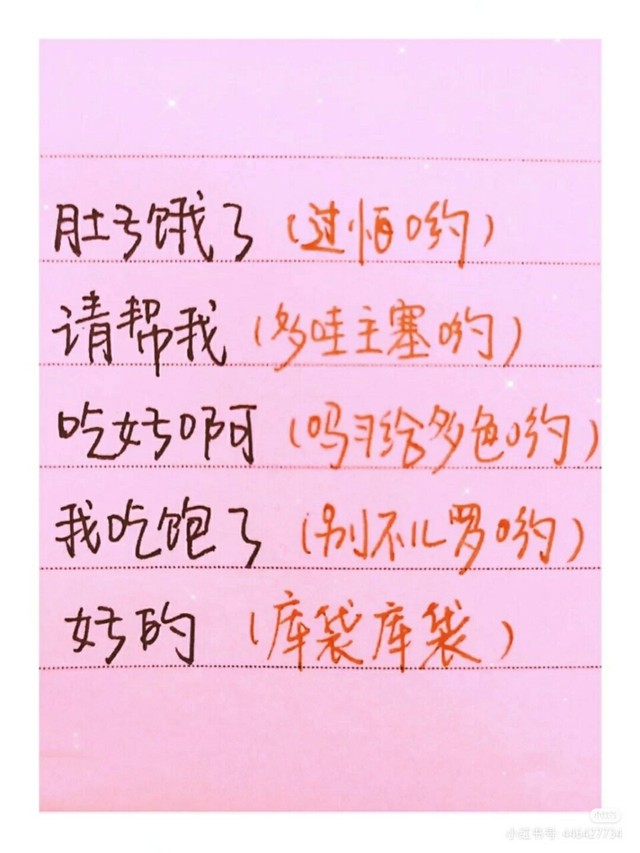 肚子饿了(过怕哟)
请帮我(多哇主塞哟)
吃好啊(吗习给多色哟)
我吃饱了(别不儿罗哟)
好的(库袋库袋)
小红书
小红书号:448427734